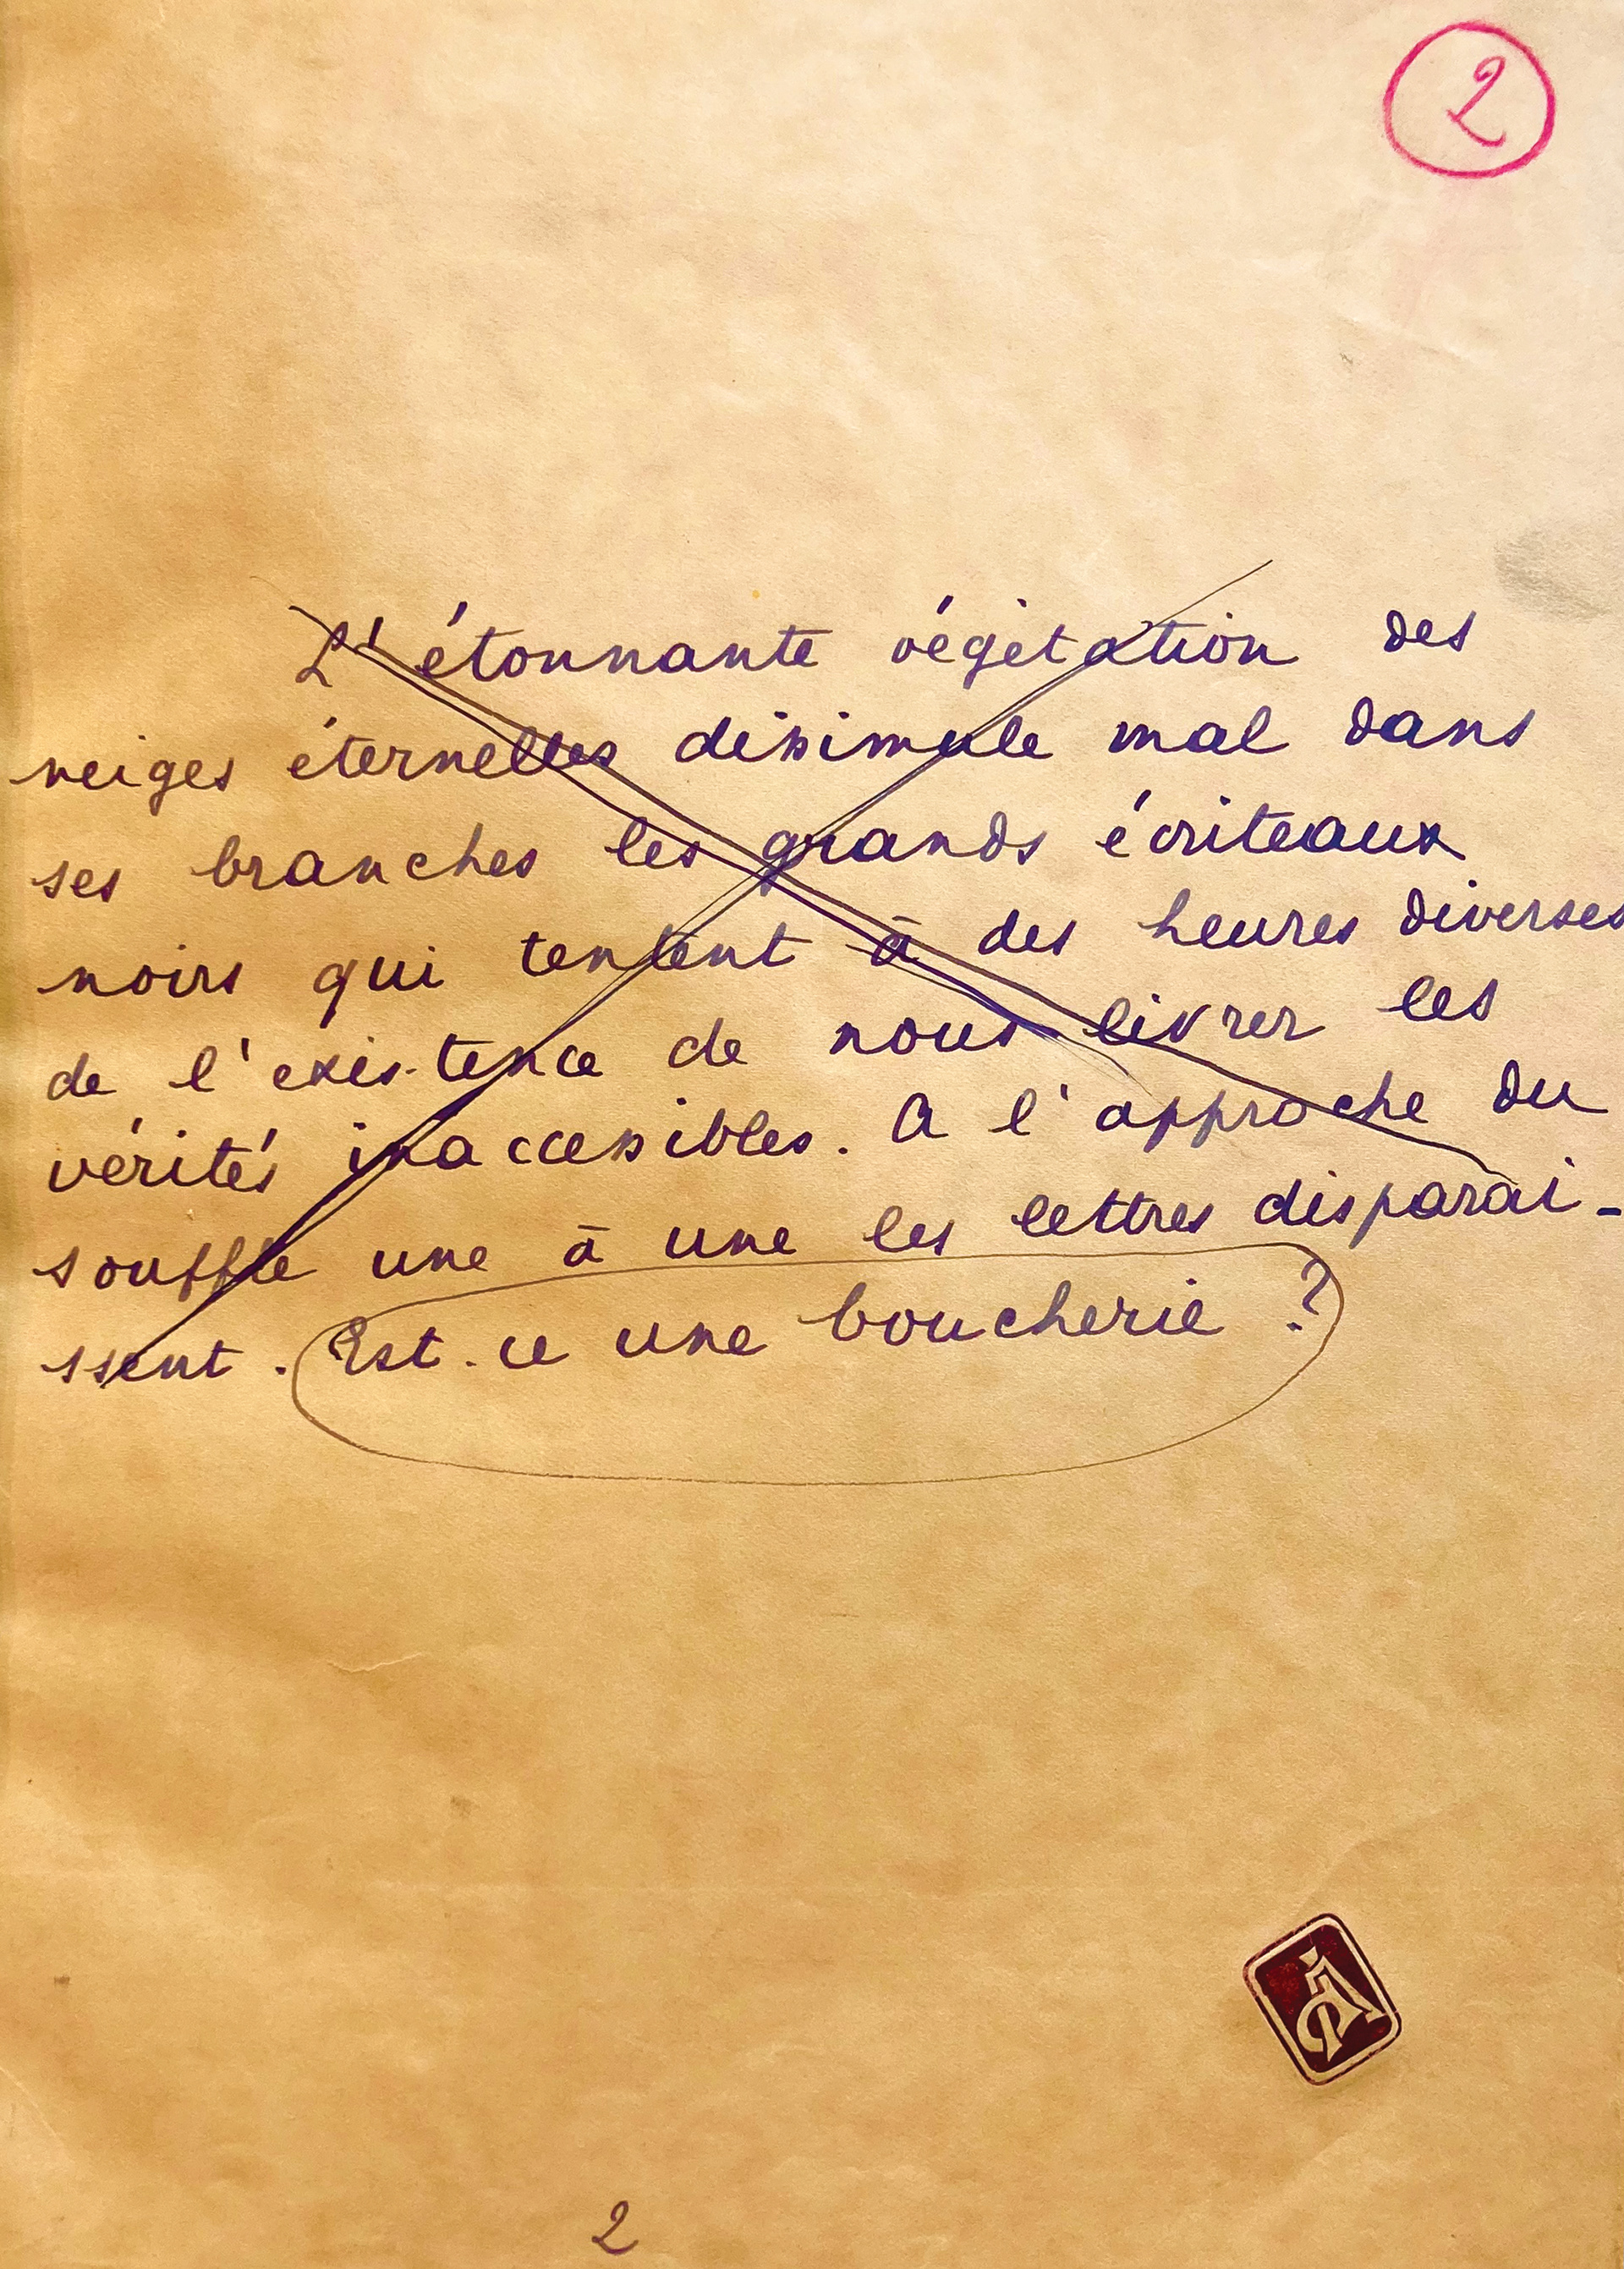 2
L'étonnante végétation des
neiges éternelles dissimule mal dans
ses branches les grands écriteaux
noirs qui tentent à des heures diverses
de l'existence de nous livrer les
vérités inaccessibles. A l'approche du
souffle une à une les lettres disparai-
ssent. Est-ce une boucherie ?
A
2